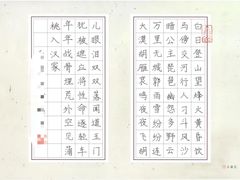 白日登山望烽火黄昏饮
马傍交河行人刁斗风沙
暗公主琵琶幽怨多野云
万里无城郭雨雪纷纷连
大漠胡雁哀鸣夜夜飞胡
儿眼泪双双落闻道玉门
犹被遮应将性命逐轻车
年年战骨埋荒外空见蒲
桃入汉家